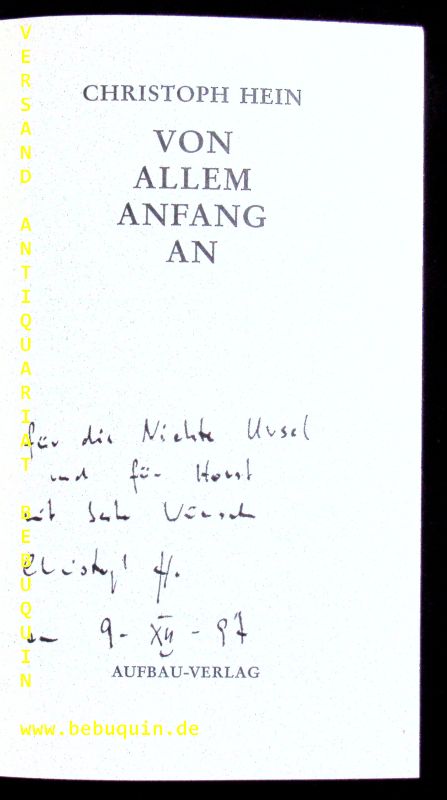 CHRISTOPH HEIN
VON
ALLEM
ANFANG
AN
für die Nichte Ursel
und für Horst
mit Wünschen
Christoph H.
9 - XII - 97
AUFBAU-VERLAG
VERSAND ANTIQUARIAT BEBUQUIN
www.bebuquin.de